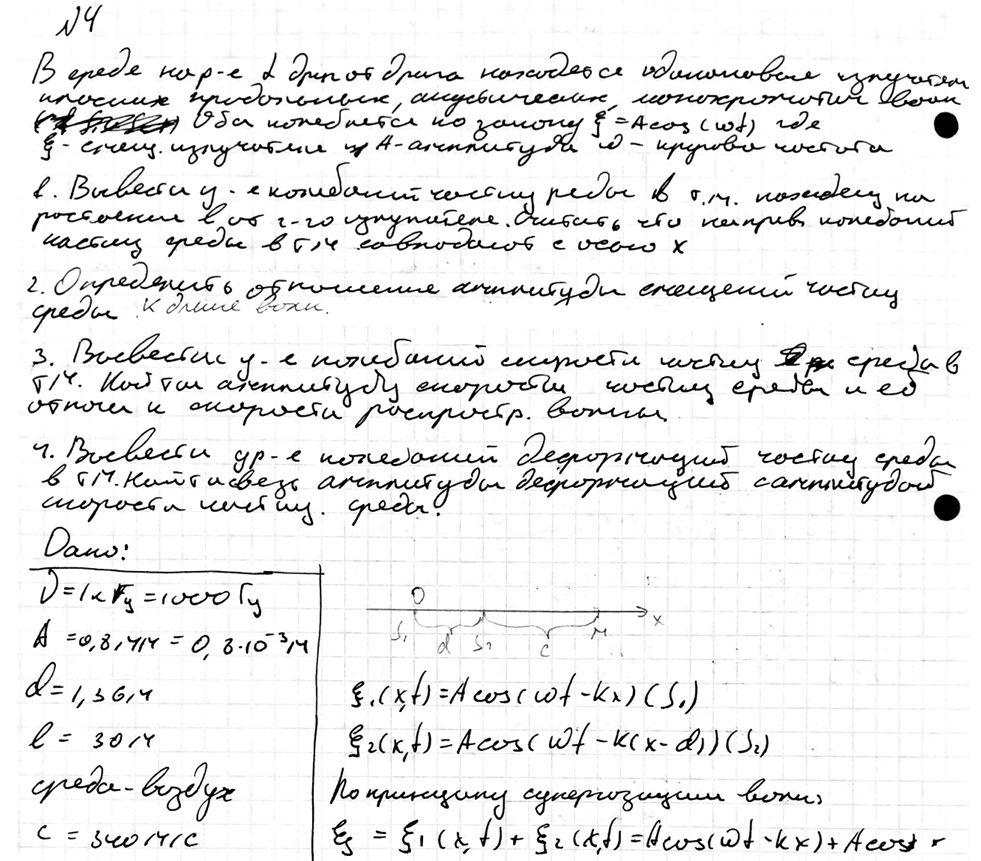 №4
В среде на р-е d друг от друга находятся одинаковые излучатели
плоских продольных, акустических, монохроматич волн
Оба колеблется по закону ξ=Acos(ωt) где
ξ-смещ. излучателя и A-амплитуда ω-кругова частота
1. Вывести у-е колебаний частиц среды в т.М. находящ на
ростоение l от 2-го излучателя. Считать что направ колебаний
частиц среды в т.М совподают с осью x
2. Определить отношение амплитуды смещений частиц
среды к длине волн.
3. Вывести у-е колебаний скорости частиц среды в
т.М. Найти амплитуду скорости частиц среды и её
отнош к скорости роспростр. волны.
4. Вывести ур-е колебаний деформаций частиц среды
в т.М. Найти связь амплитуды деформаций с амплитудой
скорости частиц. среды.
Дано:
ν=1кГц=1000Гц
A=0,8мм=0,8·10⁻³м
d=1,36м
l=30м
среда-воздух
c=340м/с
O
S₁ d S₂ c M x
ξ₁(x,t)=Acos(ωt-kx)(S₁)
ξ₂(x,t)=Acos(ωt-k(x-d))(S₂)
По принципу суперпозиции волн:
ξ=ξ₁(x,t)+ξ₂(x,t)=Acos(ωt-kx)+Acos